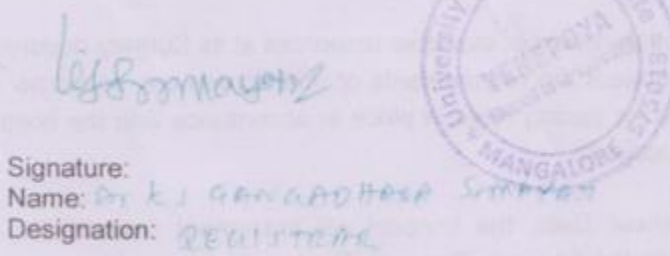 University
YENEPOYA
MANGALORE 575018
Signature:
Name: Dr K S GANGADHARA SOMAYAJI
Designation: REGISTRAR